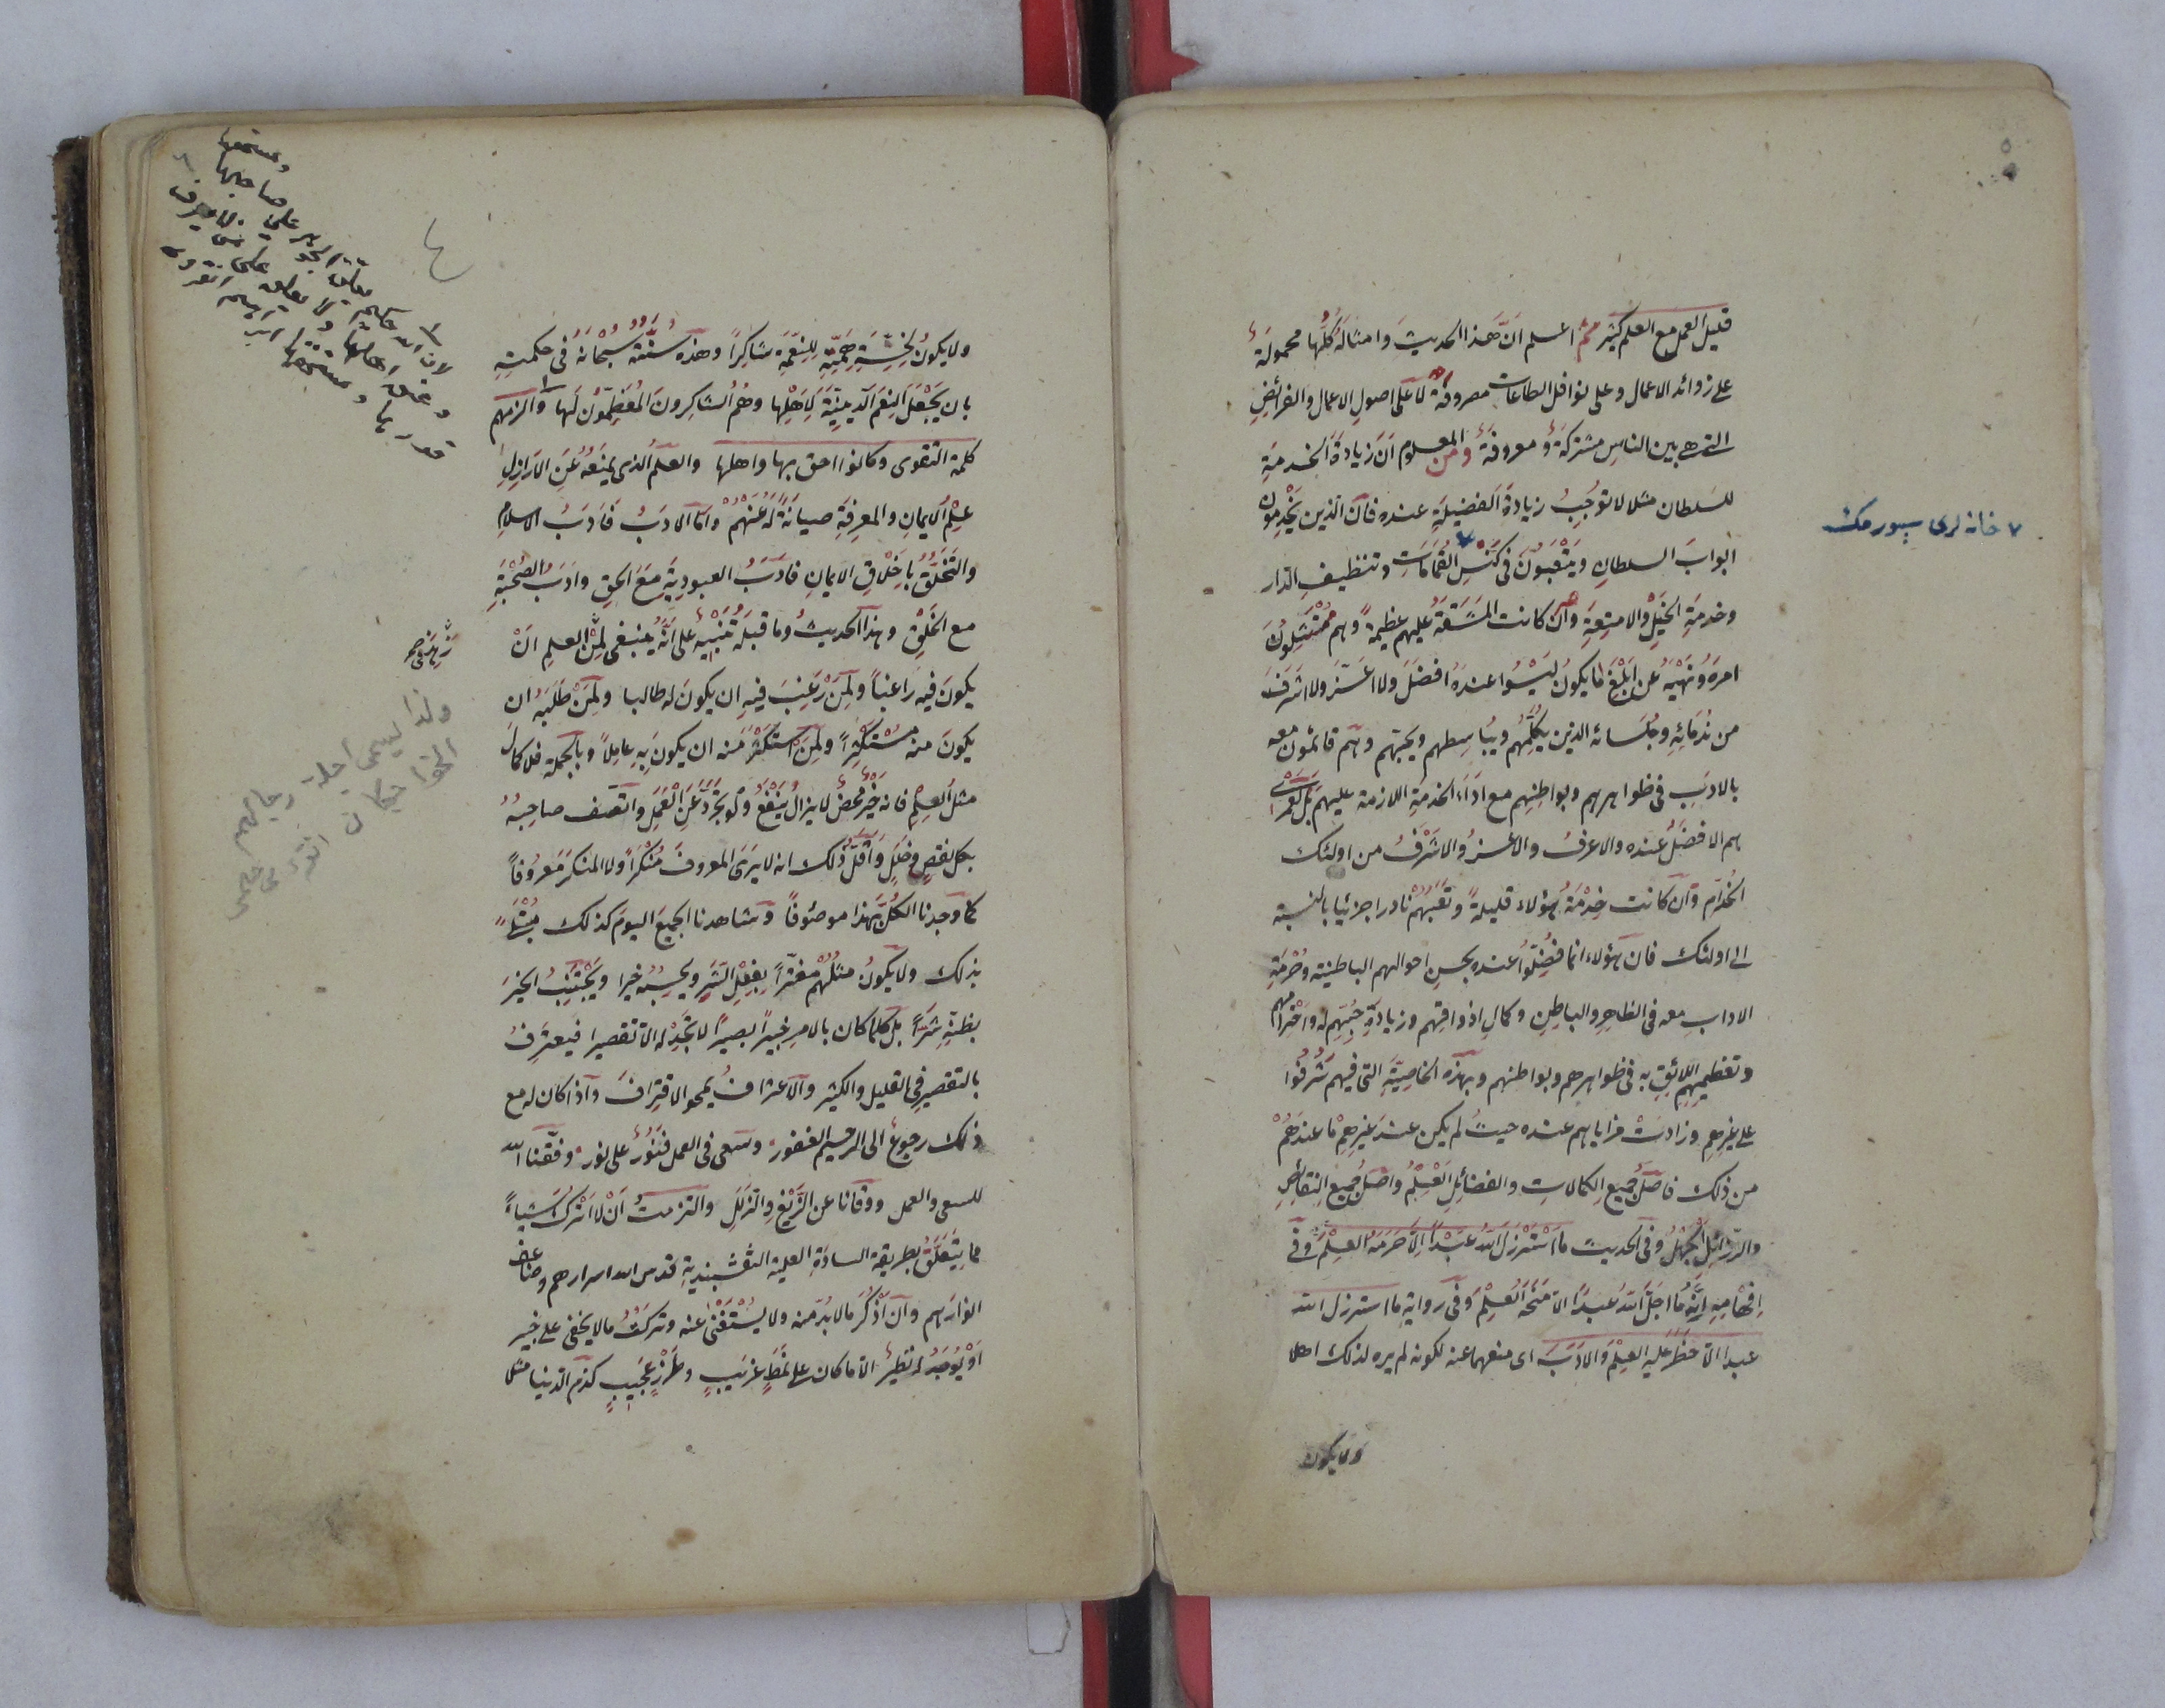 قليل العمل مع العلم كثير ثم اعلم انّ هذا الحديث وامثاله كلّها محمولة
على زوائد الاعمال وعلى نوافل الطاعات مصروفة لا على اصول الاعمال والفرائض
التى هى بين الناس مشتركة ومعروفة ومن المعلوم انّ زيادة الخدمة
للسلطان مثلا لا توجب زيادة الفضيلة عنده فانّ الذين يخدمون
ابواب السلطان ويتعبون فى كنس القمامات وتنظيف الدار
٧ خانه لرى سپورمك
وخدمة الخيل والامتعة وان كانت المشقة عليهم عظيمة وهم ممتثلون
امره ونهيه عن ابلغ ما يكون ليسوا عنده افضل ولا اعزّ ولا اشرف
من ندمائه وجلسائه الذين يكلّمهم ويباسطهم ويحبّهم وهم قائمون معه
بالادب فى ظواهرهم وبواطنهم مع اداء الخدمة اللازمة عليهم بل لعمرى
هم الافضل عنده والاعرف والاعزّ والاشرف من اولئك
الخدّام وان كانت خدمة هؤلاء قليلة وتعبهم نادرا جزئيا بالنسبة
الى اولئك فان هؤلاء انما فضّلوا عنده بحسن احوالهم الباطنية وحرمة
الاداب معه فى الظاهر والباطن وكمال اذواقهم وزيادة حبّهم له واحترامهم
وتعظيمهم اللائق به فى ظواهرهم وبواطنهم وبهذه الخاصيّة التى فيهم شرفوا
على غيرهم وزادت مزاياهم عنده حيث لم يكن عند غيرهم ما عندهم
من ذلك فاصل جميع الكمالات والفضائل العلم واصل جميع النقائص
والرذائل الجهل وفى الحديث ما استرذل الله عبدا الّا حرمه العلم وفى
افهامه انّه ما اجلّ الله عبدا الّا منحه العلم وفى رواية ما استرذل الله
عبدا الّا حظر عليه العلم والادب اى منعهما عنه لكونه لم يره لذلك اهلا
ولا يكون
ولا يكون لخسّة همّته للنعمة شاكرا وهذه سنّته سبحانه فى حكمته
بان يجعل النعم الدينيّة لاهلها وهم الشاكرون المعظّمون لها والزمهم
كلمة التقوى وكانوا احق بها واهلها والعلم الذى يمنعه عن الاراذل
علم الايمان والمعرفة صيانة له عنهم وامّا الادب فادب الاسلام
والتخلّق باخلاق الايمان فادب العبودية مع الحق وادب الصحبة
مع الخلق وهذا الحديث وما قبله تنبيه على انّه ينبغى لمن العلم ان
يكون فيه راغبا ولمن رغب فيه ان يكون له طالبا ولمن طلبه ان
يكون منه مستكثرا ولمن استكثر منه ان يكون به عاملا وبالجملة فلا كمال
مثل العلم فانه خير محض لا يزال ينفع ولو تجرّد عن العمل واتّصف صاحبه
بكل نقص وخلل واقلّ ذلك انه لا يرى المعروف منكرا ولا المنكر معروفا
كما وجدنا الكلّ بهذا موصوفا وشاهدنا الجميع اليوم كذلك مبتلى
بذلك ولا يكون مثلهم مغترّا بفعل الشر ويحسبه خيرا ويجتنب الخير
بظنّه شرّا بل كلّما كان بالامر خبيرا بصيرا لا تجد له الّا تقصيرا فيعترف
بالتقصير فى القليل والكثير والاعتراف يمحو الاقتراف واذا كان له مع
ذلك رجوع الى الرحيم الغفور وسعى فى العمل فنور على نور وفّقنا الله
للسعى والعمل ووقانا عن الزيغ والزلل والتزمت ان لا اترك شيئا
مما يتعلّق بطريقة السادة العلية النقشبندية قدس الله اسرارهم وضاعف
انوارهم وان اذكر مالا بدّ منه ولا يستغنى عنه وتركت ما لا يخفى على خبير
او يوجد له نظير الّا ما كان على نمط غريب وطرز عجيب كذم الدنيا مثلا